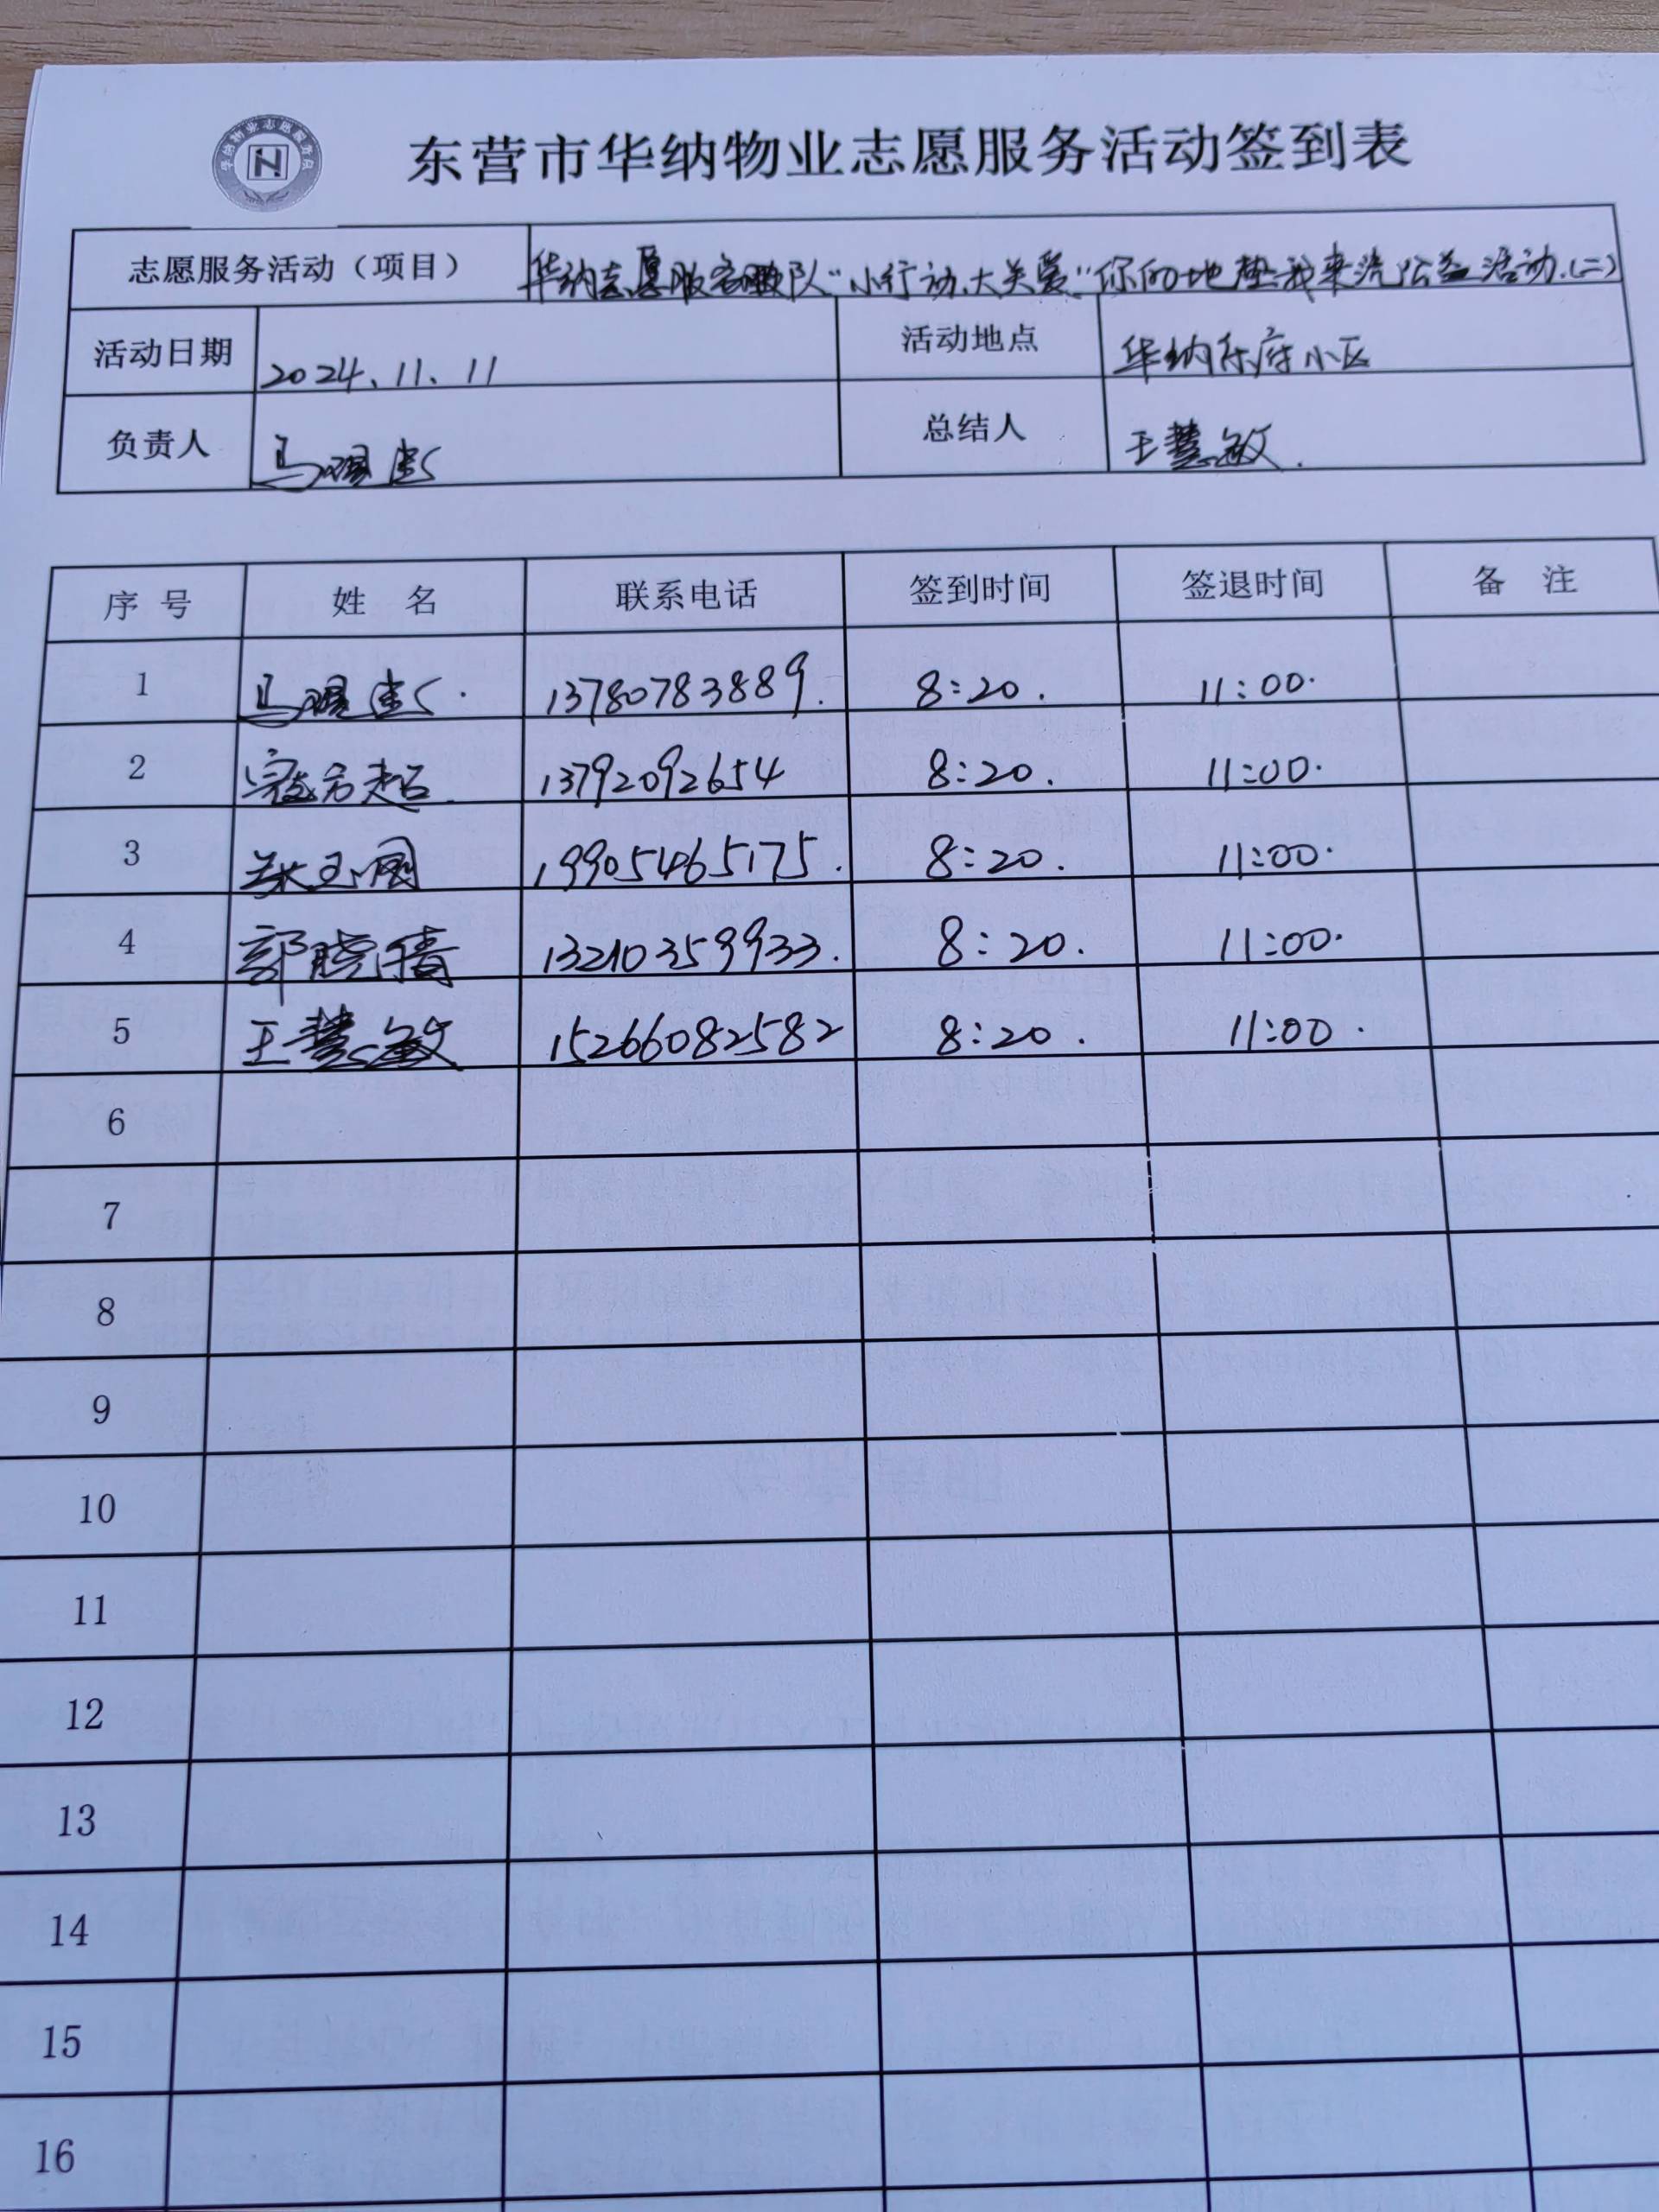 东营市华纳物业志愿服务活动签到表
志愿服务活动（项目） 华纳志愿服务队“小行动、大关爱”你的地垫我来洗公益活动.(二)
活动日期 2024、11、11 活动地点 华纳东府小区
负责人 马 总结人 王慧敏.
序号 姓 名 联系电话 签到时间 签退时间 备 注
1 马 13780783889. 8:20. 11:00.
2 寇方超. 13792092654 8:20. 11:00.
3 张玉国 19905465175. 8:20. 11:00.
4 郭晓倩 13210359933. 8:20. 11:00.
5 王慧敏 15266082582 8:20. 11:00.
6
7
8
9
10
11
12
13
14
15
16